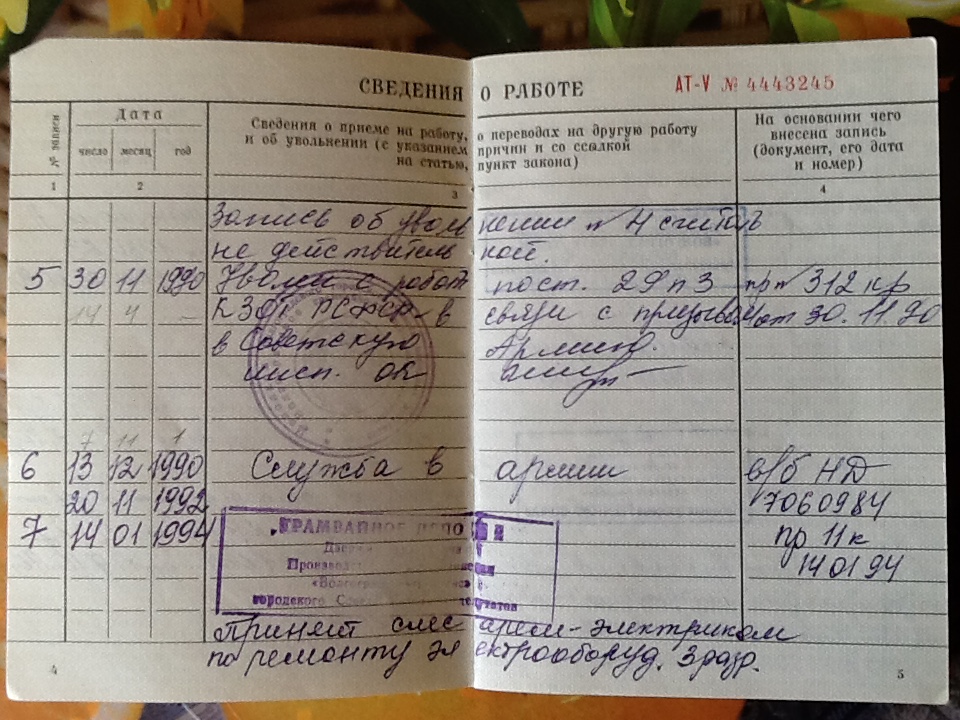 СВЕДЕНИЯ О РАБОТЕ
АТ-V № 4443245
№ записи
Дата
число месяц год
Сведения о приеме на работу, о переводах на другую работу
и об увольнении (с указанием причин и со ссылкой
на статью, пункт закона)
На основании чего
внесена запись
(документ, его дата
и номер)
1 2 3 4
Запись об увольнении № 4 считать
не действительной.
5 30 11 1990 Уволен с работы ст. 29 п 3 пр № 312 кр
КЗОТ РСФСР в связи с призывом от 30.11.90
в Советскую Армию.
инсп. ОК
6 13 12 1990 Служба в армии в/б НД
20 11 1992 7060984
7 14 01 1994 ТРАМВАЙНОЕ ДЕПО пр 11к
14 01 94
городского
Принят слесарем-электриком
по ремонту электрооборуд. 3 разр.
4 5